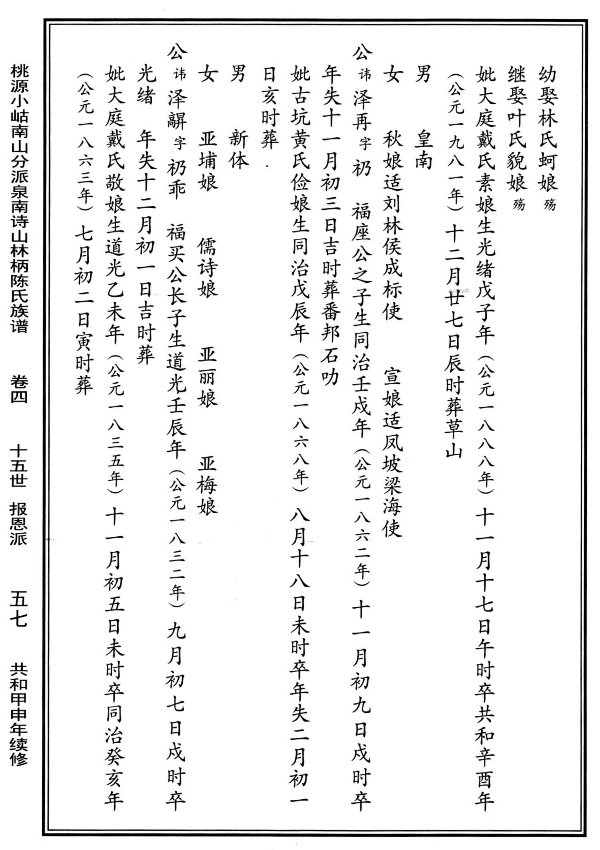 幼娶林氏蚵娘 殇
继娶叶氏貌娘 殇
妣大庭戴氏素娘生光绪戊子年（公元一八八八年）十一月十七日午时卒共和辛酉年
（公元一九八一年）十二月廿七日辰时葬草山
男 皇南
女 秋娘适刘林侯成标使 宣娘适凤坡梁海使
公 讳 泽再 字 礽 福座公之子生同治壬戌年（公元一八六二年）十一月初九日戌时卒
年失十一月初三日吉时葬番邦石叻
妣古坑黄氏俭娘生同治戊辰年（公元一八六八年）八月十八日未时卒年失二月初一
日亥时葬．
男 新体
女 亚埔娘 儒诗娘 亚丽娘 亚梅娘
公 讳 泽 字 礽乖 福买公长子生道光壬辰年（公元一八三二年）九月初七日戌时卒
光绪 年失十二月初一日吉时葬
妣大庭戴氏敬娘生道光乙未年（公元一八三五年）十一月初五日未时卒同治癸亥年
（公元一八六三年）七月初二日寅时葬
桃源小岵南山分派泉南诗山林柄陈氏族谱 卷四 十五世 报恩派 五七 共和甲申年续修